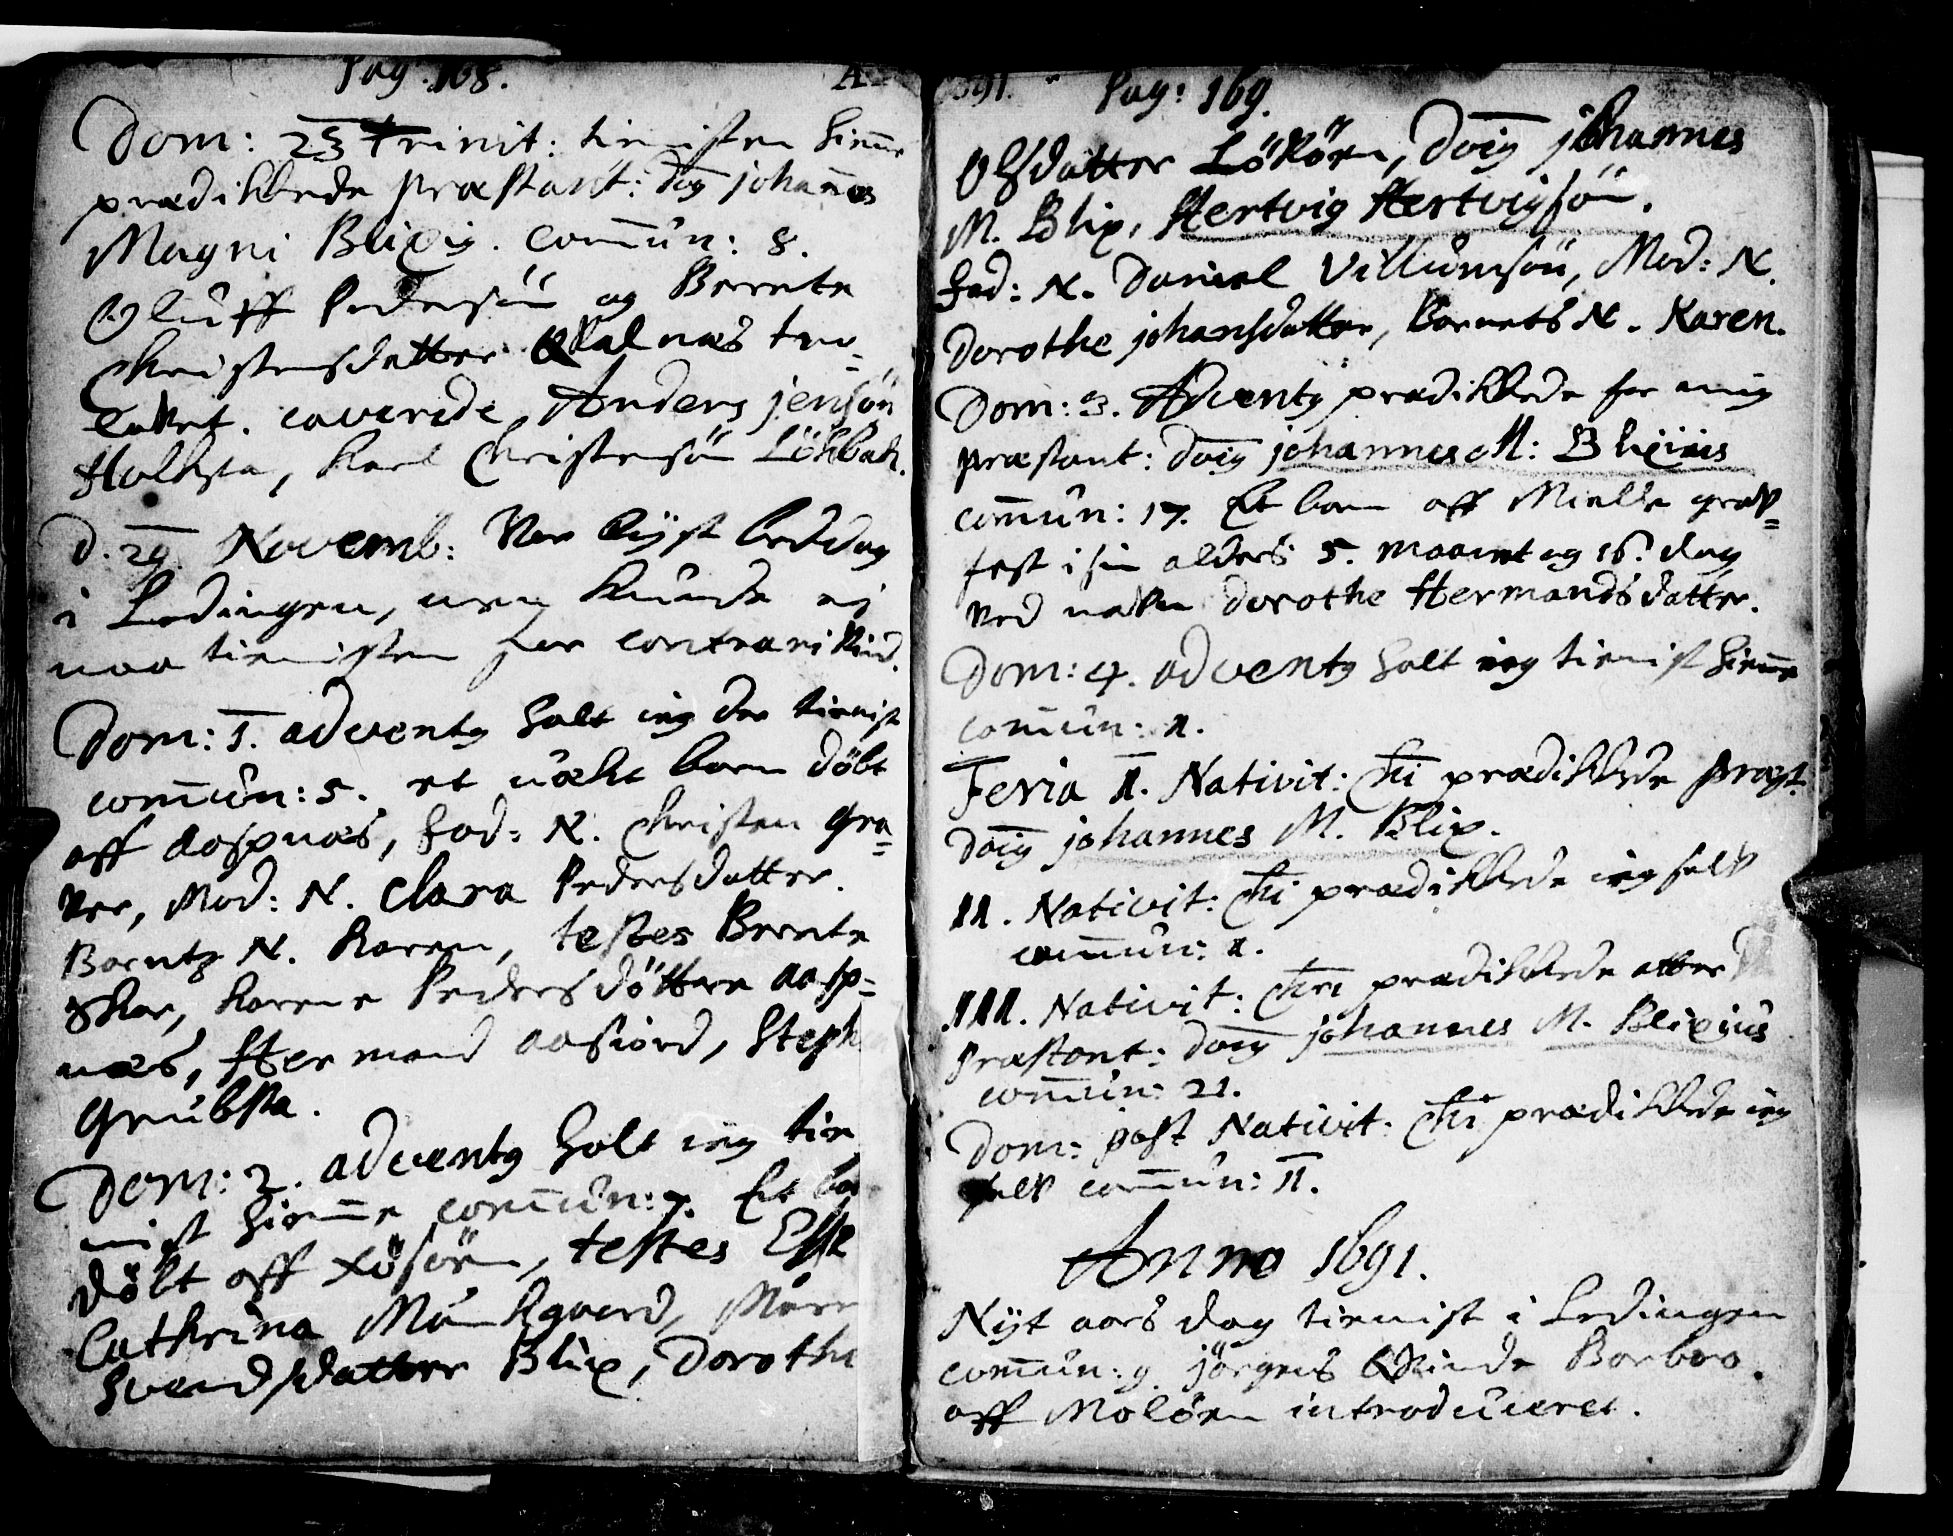 Pag: 168.
Dom: 23 Trinit: tienisten hieme
prædikkede præstant: Dn̄s johannes
Magni Blixig. com̄un: 8.
Oluff Pedersön og Berete
Christensdatter Qvalnæs tro-
lovet. caverede, Anders jensön
Holksta, Karl Christensön Lökbak.
d. 29. Novemb: Var lÿst beddag
i Lødingen, men kunde ej
naa tienisten for contrari vind.
Dom: 1. adventg holt ieg der tienist
com̄un: 5. et uækt barn döbt
aff aaspnæs, Fad: N. Christen Gra=
ver, Mod: N. Clara Pedersdatter.
Barntz N. Karen, testes Berete
Skar, Karene Pedersdöttre aasp=
næs, Hermand aafiord, Steph
Grubsta.
Dom: 2. adventg holt ieg tie
nist hiem̄e com̄un: 7. Et ba
döbt aff , testes Else
Cathrina Munkgaard, Mare
Svendsdatter Blix, Dorothe
A 1691. Pag: 169.
Olsdatter Lökörn, Dn̄s johannes
M. Blix, Hertvig Hertvigsön.
Fad: N. Daniel Villumsön, Mod: N.
Dorothe johansdatter, Barnets N. Karen.
Dom: 3. Adventg prædikkede for mig
præstant: Dn̄s johannes M: Blixius
com̄un: 17. Et barn aff Mielle graf=
fest i sin alders 5. maanet og 16. dag
ved nafn Dorothe Hermandsdatter.
Dom: 4. adventg holt ieg tienist hiem̄e
com̄un: 11.
Feria I. Nativit: Chr̄i prædikkede Præst.
Dn̄s johannes M. Blix.
II. Nativit: Chr̄i prædikkede ieg self
com̄un: 1.
III. Nativit: Chr̄i prædikkede atter
Præstant: Dn̄s johannes M. Blixius
com̄un: 21.
Dom: post Nativit: Chr̄i prædikkede ieg
self com̄un: 11.
Anno 1691.
Nÿt aars dag tienist i Lødingen
com̄un: 9. jörgens Qvinde Barbro
aff Molörn introduceret.